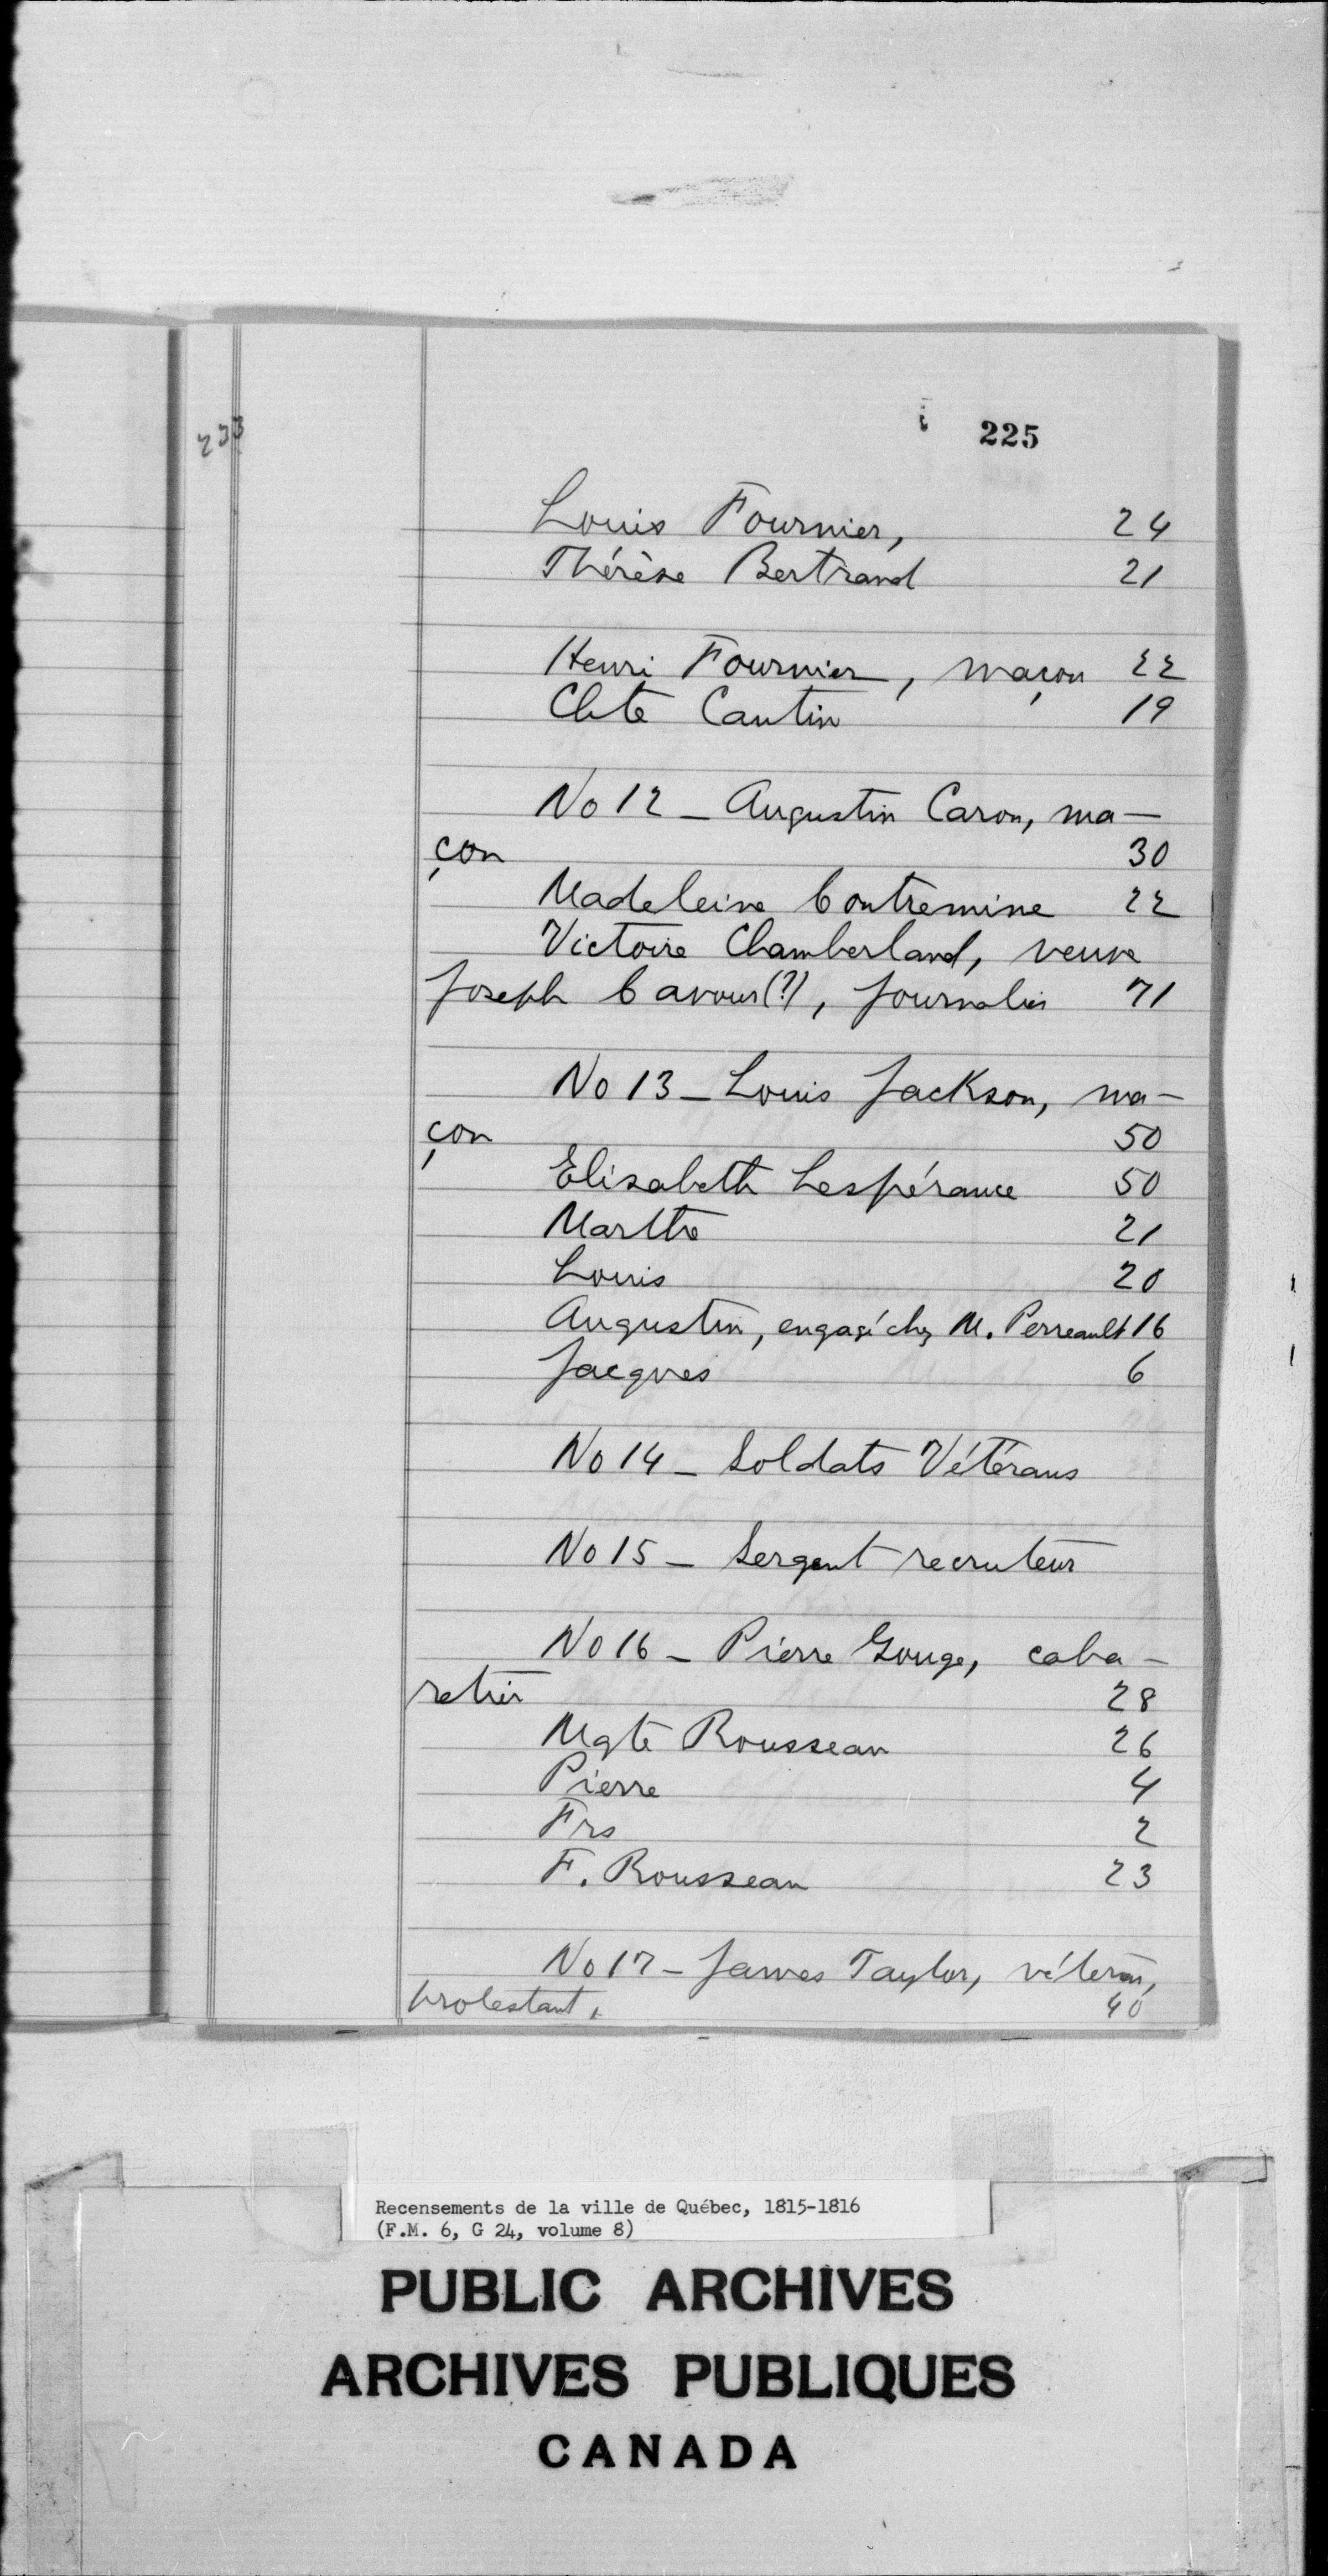 225
233
Louis Fournier, 24
Thérèse Bertrand 21
Henri Fournier, maçon 22
Chte Cantin 19
No 12 _ Augustin Caron, ma-
çon 30
Madeleine Contremine 22
Victoire Chamberland, veuve
Joseph Cavour(?), journalier 71
No 13 _ Louis Jackson, ma-
çon 50
Elisabeth Lespérance 50
Marthe 21
Louis 20
Augustin, engagé chez M. Perreault 16
Jacques 6
No 14 _ Soldats Vétérans
No 15 _ Sergent recruteur
No 16 _ Pierre Gouge, caba-
retier 28
Mgte Rousseau 26
Pierre 4
Frs 2
F. Rousseau 23
No 17 - James Taylor, vétéran,
protestant, 40
Recensements de la ville de Québec, 1815-1816
(F.M. 6, G 24, volume 8)
PUBLIC ARCHIVES
ARCHIVES PUBLIQUES
CANADA